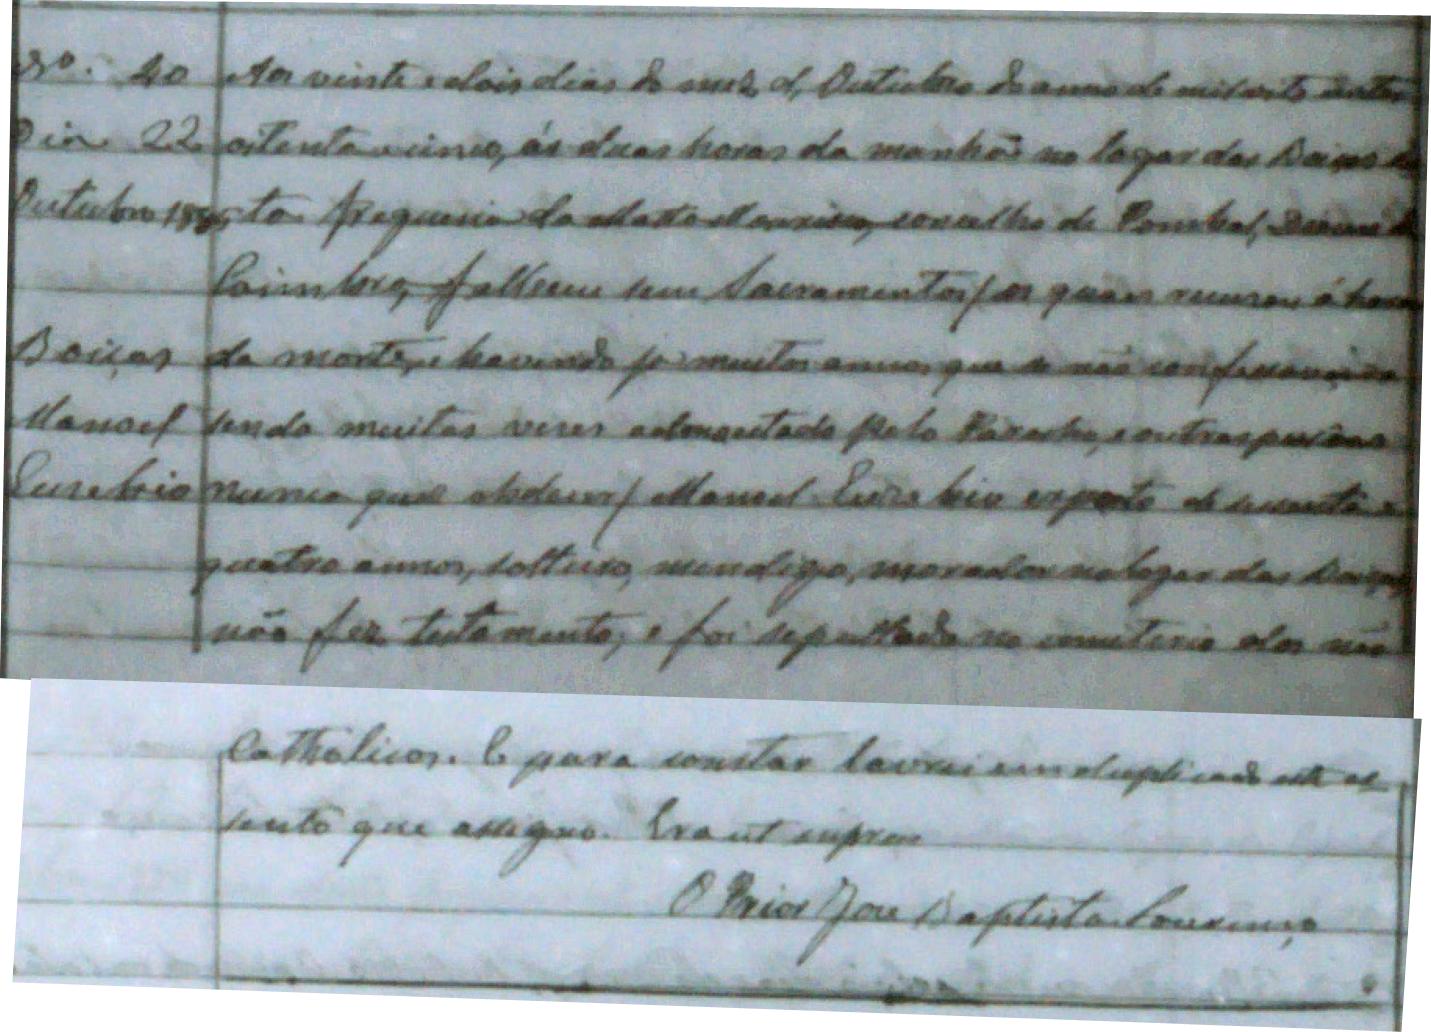 Nº. 40 Aos vinte e dois dias do mez de Outubro do anno de mil oito centos
Dia 22 oitenta e cinco, ás duas horas da manhã no logar das Boiças
Outubro 1885 ta freguesia da Matta Mourisca, concelho de Pombal, Diocese de
Coimbra, falleceu sem Sacramentos (os quaes recusou á hora
Boiças da morte, e havendo já muitos annos que se não confessava,
Manoel sendo muitas vezes admoestado pelo Parocho, e outras pessoas
Eusebio nunca quis obdecer) Manoel Eusebio exposto de sesenta e
quatro annos, solteiro, mendigo, morador no logar das Boiças
não fez testamento, e foi sepultado no cemiterio dos não
Catholicos. E para constar lavrei em duplicado este as
sento que assigno. Era ut supra
O Prior José Baptista Lourenço